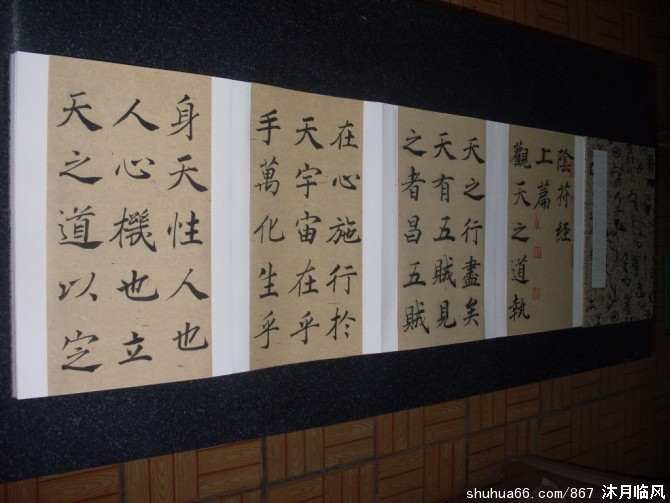 陰符经
上篇
觀天之道執
天之行盡矣
天有五賊見
之者昌五賊
在心施行於
天宇宙在乎
手萬化生乎
身天性人也
人心機也立
天之道以定
shuhua66.com/867 沐月临风